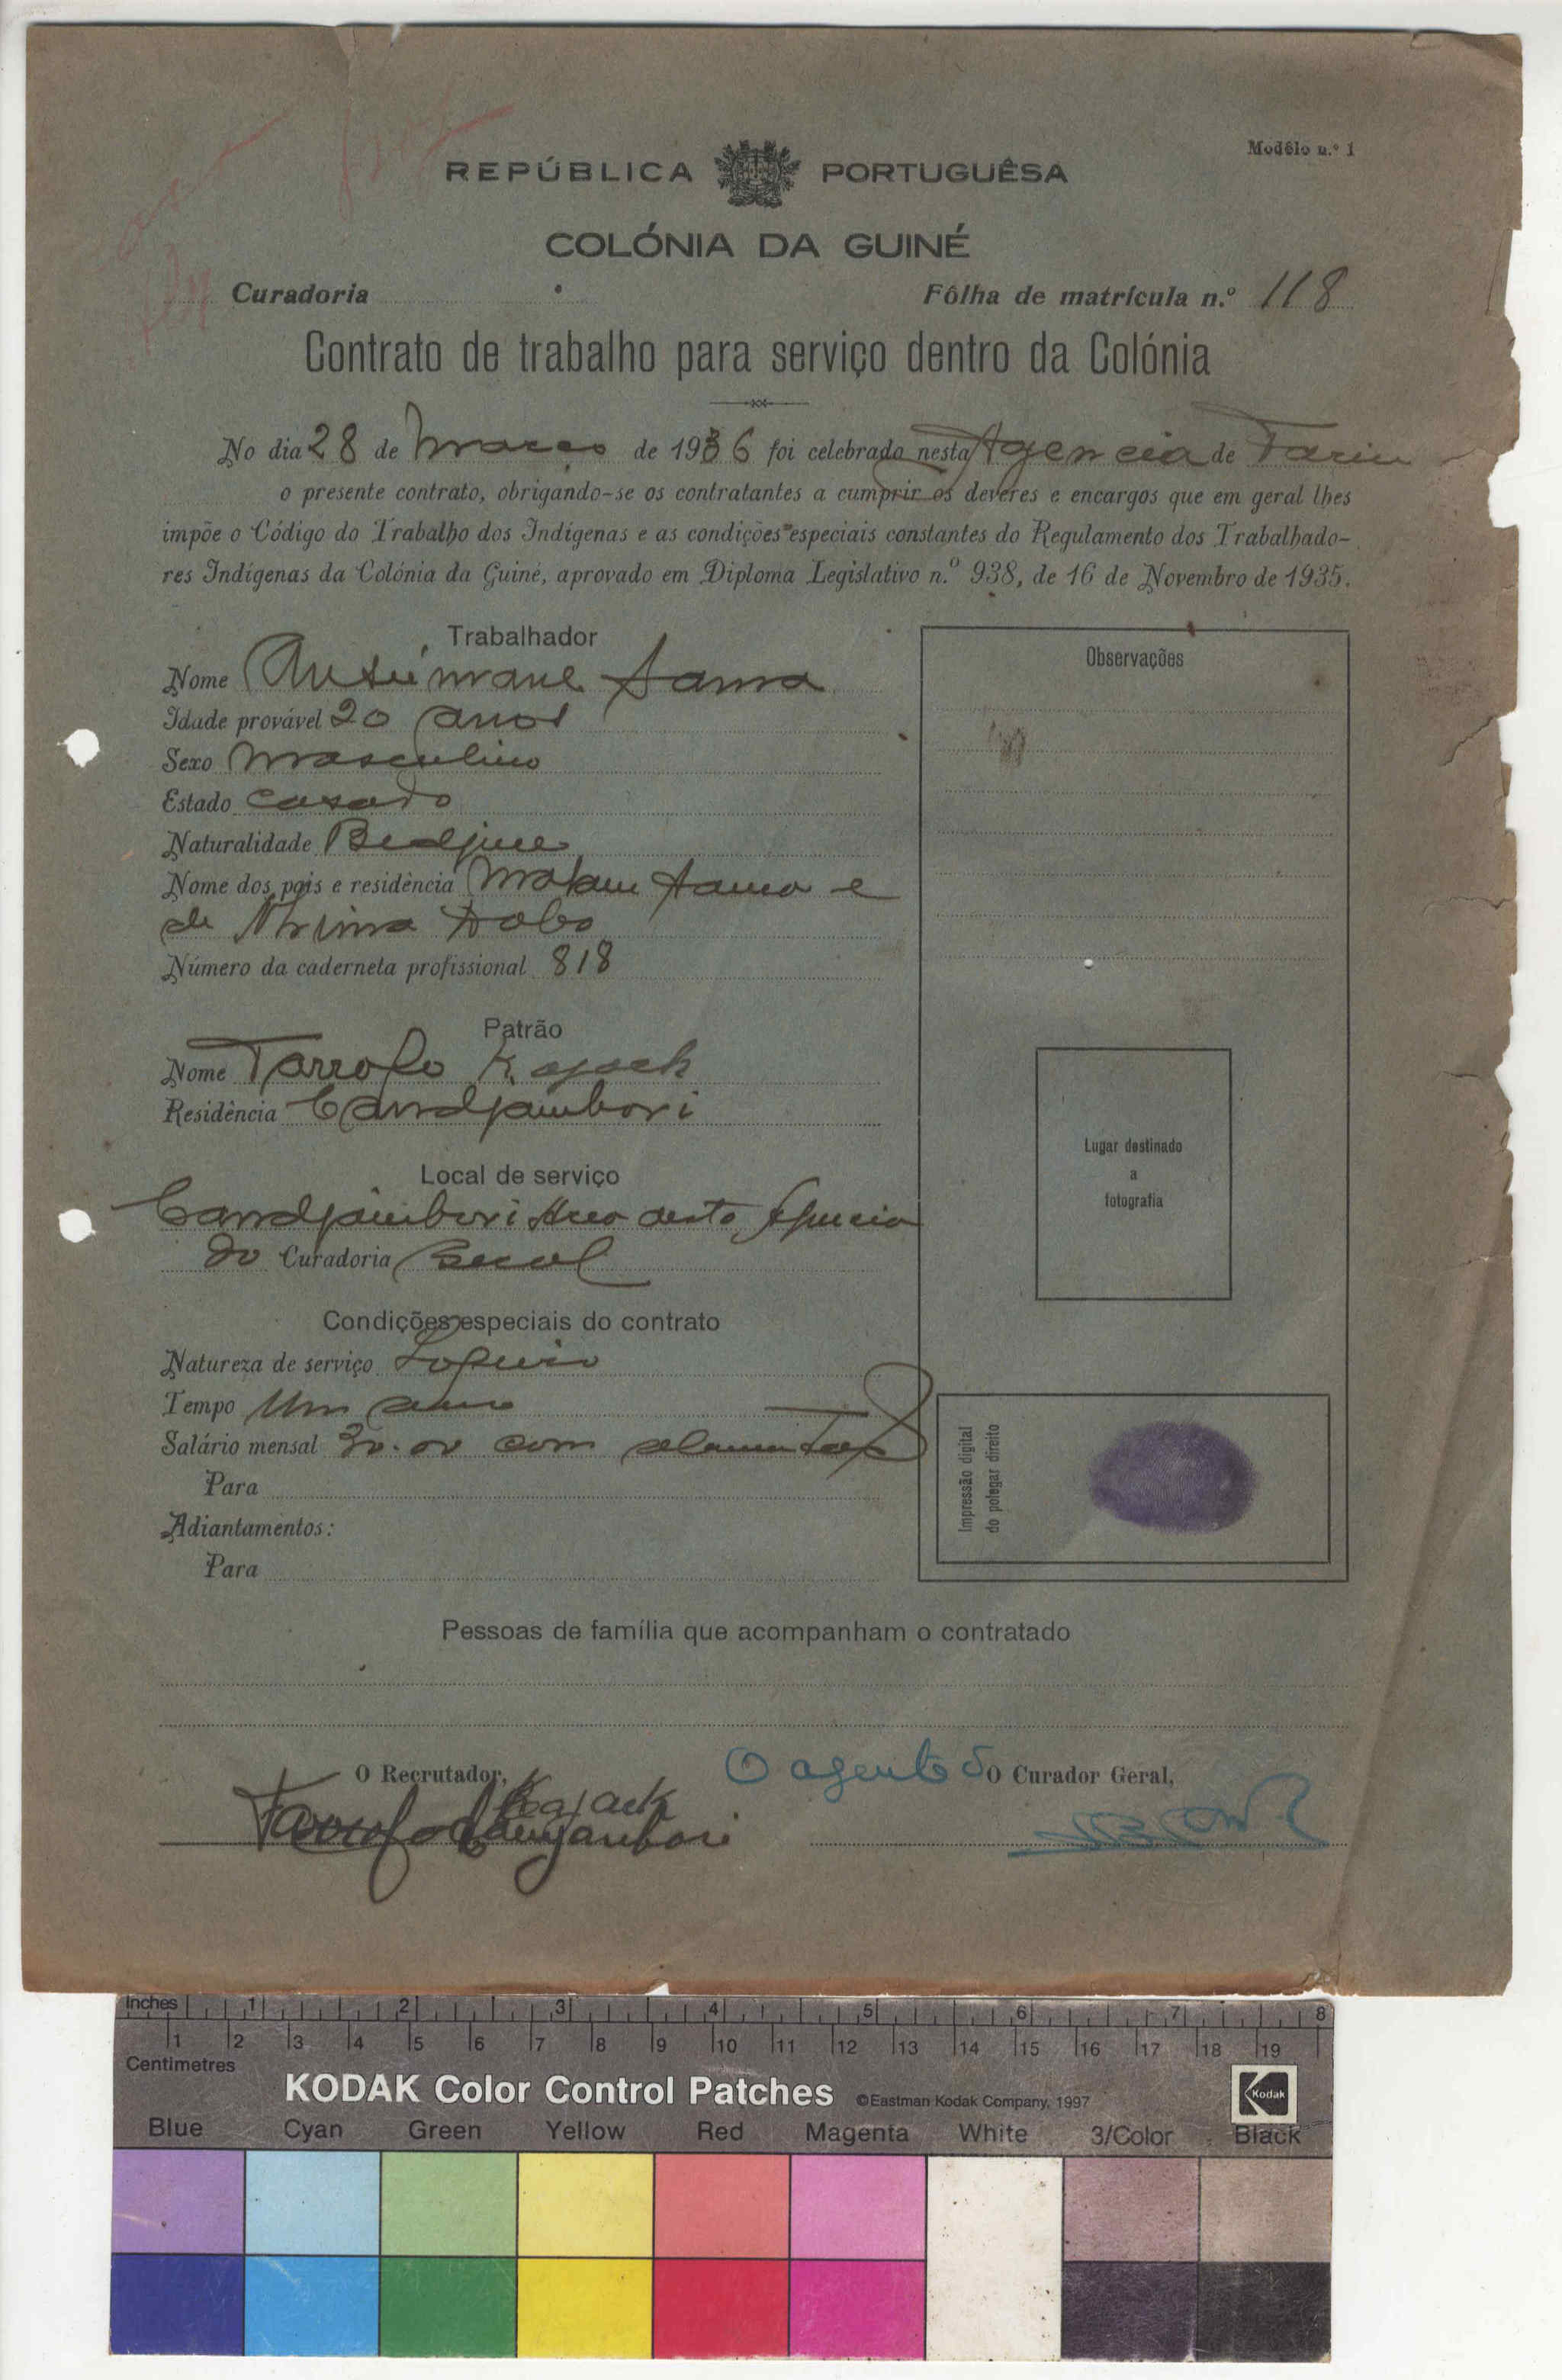 Modêlo n.º 1
REPÚBLICA PORTUGUÊSA
COLÓNIA DA GUINÉ
Curadoria
Fôlha de matrícula n.º 118
Contrato de trabalho para serviço dentro da Colónia
No dia 28 de Março de 1936 foi celebrado nesta Agencia de Farim
o presente contrato, obrigando-se os contratantes a cumprir os deveres e encargos que em geral lhes
impõe o Código do Trabalho dos Indígenas e as condições especiais constantes do Regulamento dos Trabalhado-
res Indígenas da Colónia da Guiné, aprovado em Diploma Legislativo n.º 938, de 16 de Novembro de 1935.
Trabalhador
Nome
Idade provável 20 anos
Sexo Masculino
Estado casado
Naturalidade
Nome dos pais e residência e
de
Número da caderneta profissional 818
Patrão
Nome
Residência Candjambori
Local de serviço
Candjambori Area desta Agencia
do Curadoria Geral
Condições especiais do contrato
Natureza de serviço
Tempo Um ano
Salário mensal 30.00 com
Para
Adiantamentos:
Para
Observações
Lugar destinado
a
fotografia
Impressão digital
do polegar direito
Pessoas de família que acompanham o contratado
O Recrutador,
O agente do O Curador Geral,
Inches 1 2 3 4 5 6 7 8
1 2 3 4 5 6 7 8 9 10 11 12 13 14 15 16 17 18 19
Centimetres
KODAK Color Control Patches ©Eastman Kodak Company, 1997 Kodak
Blue Cyan Green Yellow Red Magenta White 3/Color Black